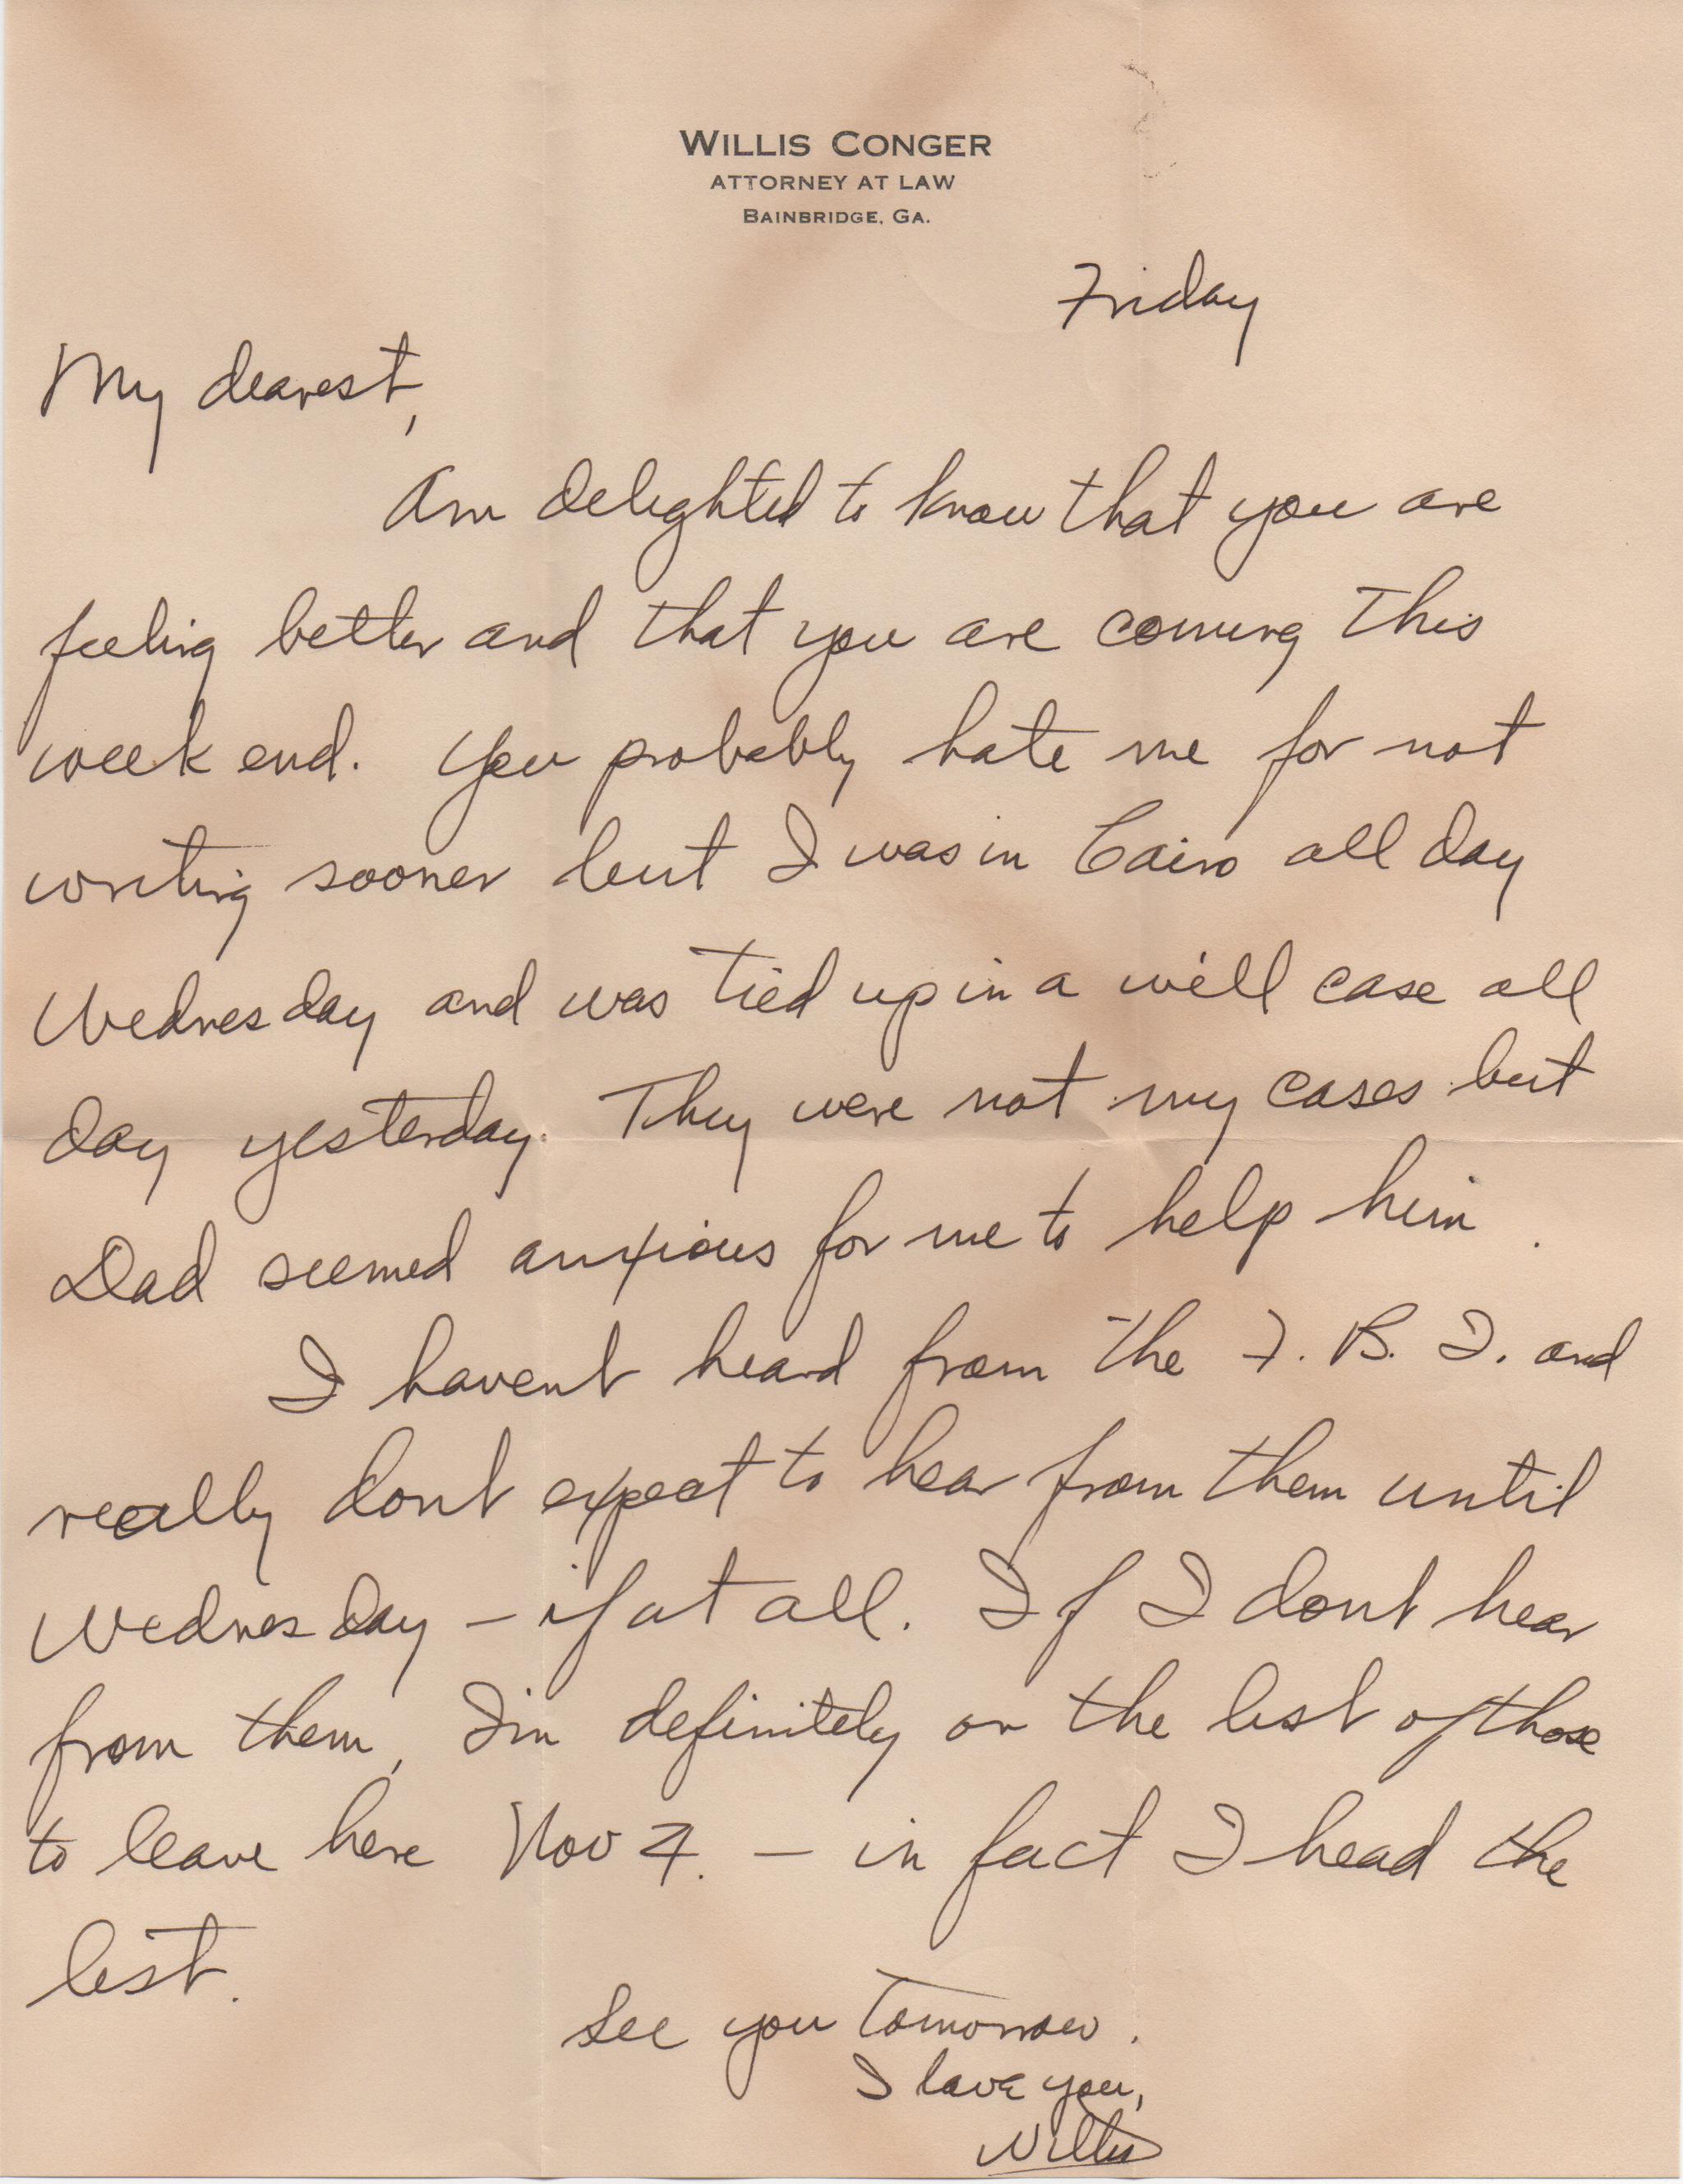 WILLIS CONGER
ATTORNEY AT LAW
BAINBRIDGE, GA.
Friday
My dearest,
Am delighted to know that you are
feeling better and that you are coming this
week end. You probably hate me for not
writing sooner but I was in Cairo all day
Wednesday and was tied up in a will case all
day yesterday. They were not my cases but
Dad seemed anxious for me to help him.
I havent heard from the F. B. I. and
really dont expect to hear from them until
Wednesday – if at all. If I dont hear
from them, Im definitely on the list of those
to leave here Nov 4. – in fact I head the
list.
See you tomorrow.
I love you,
Willis